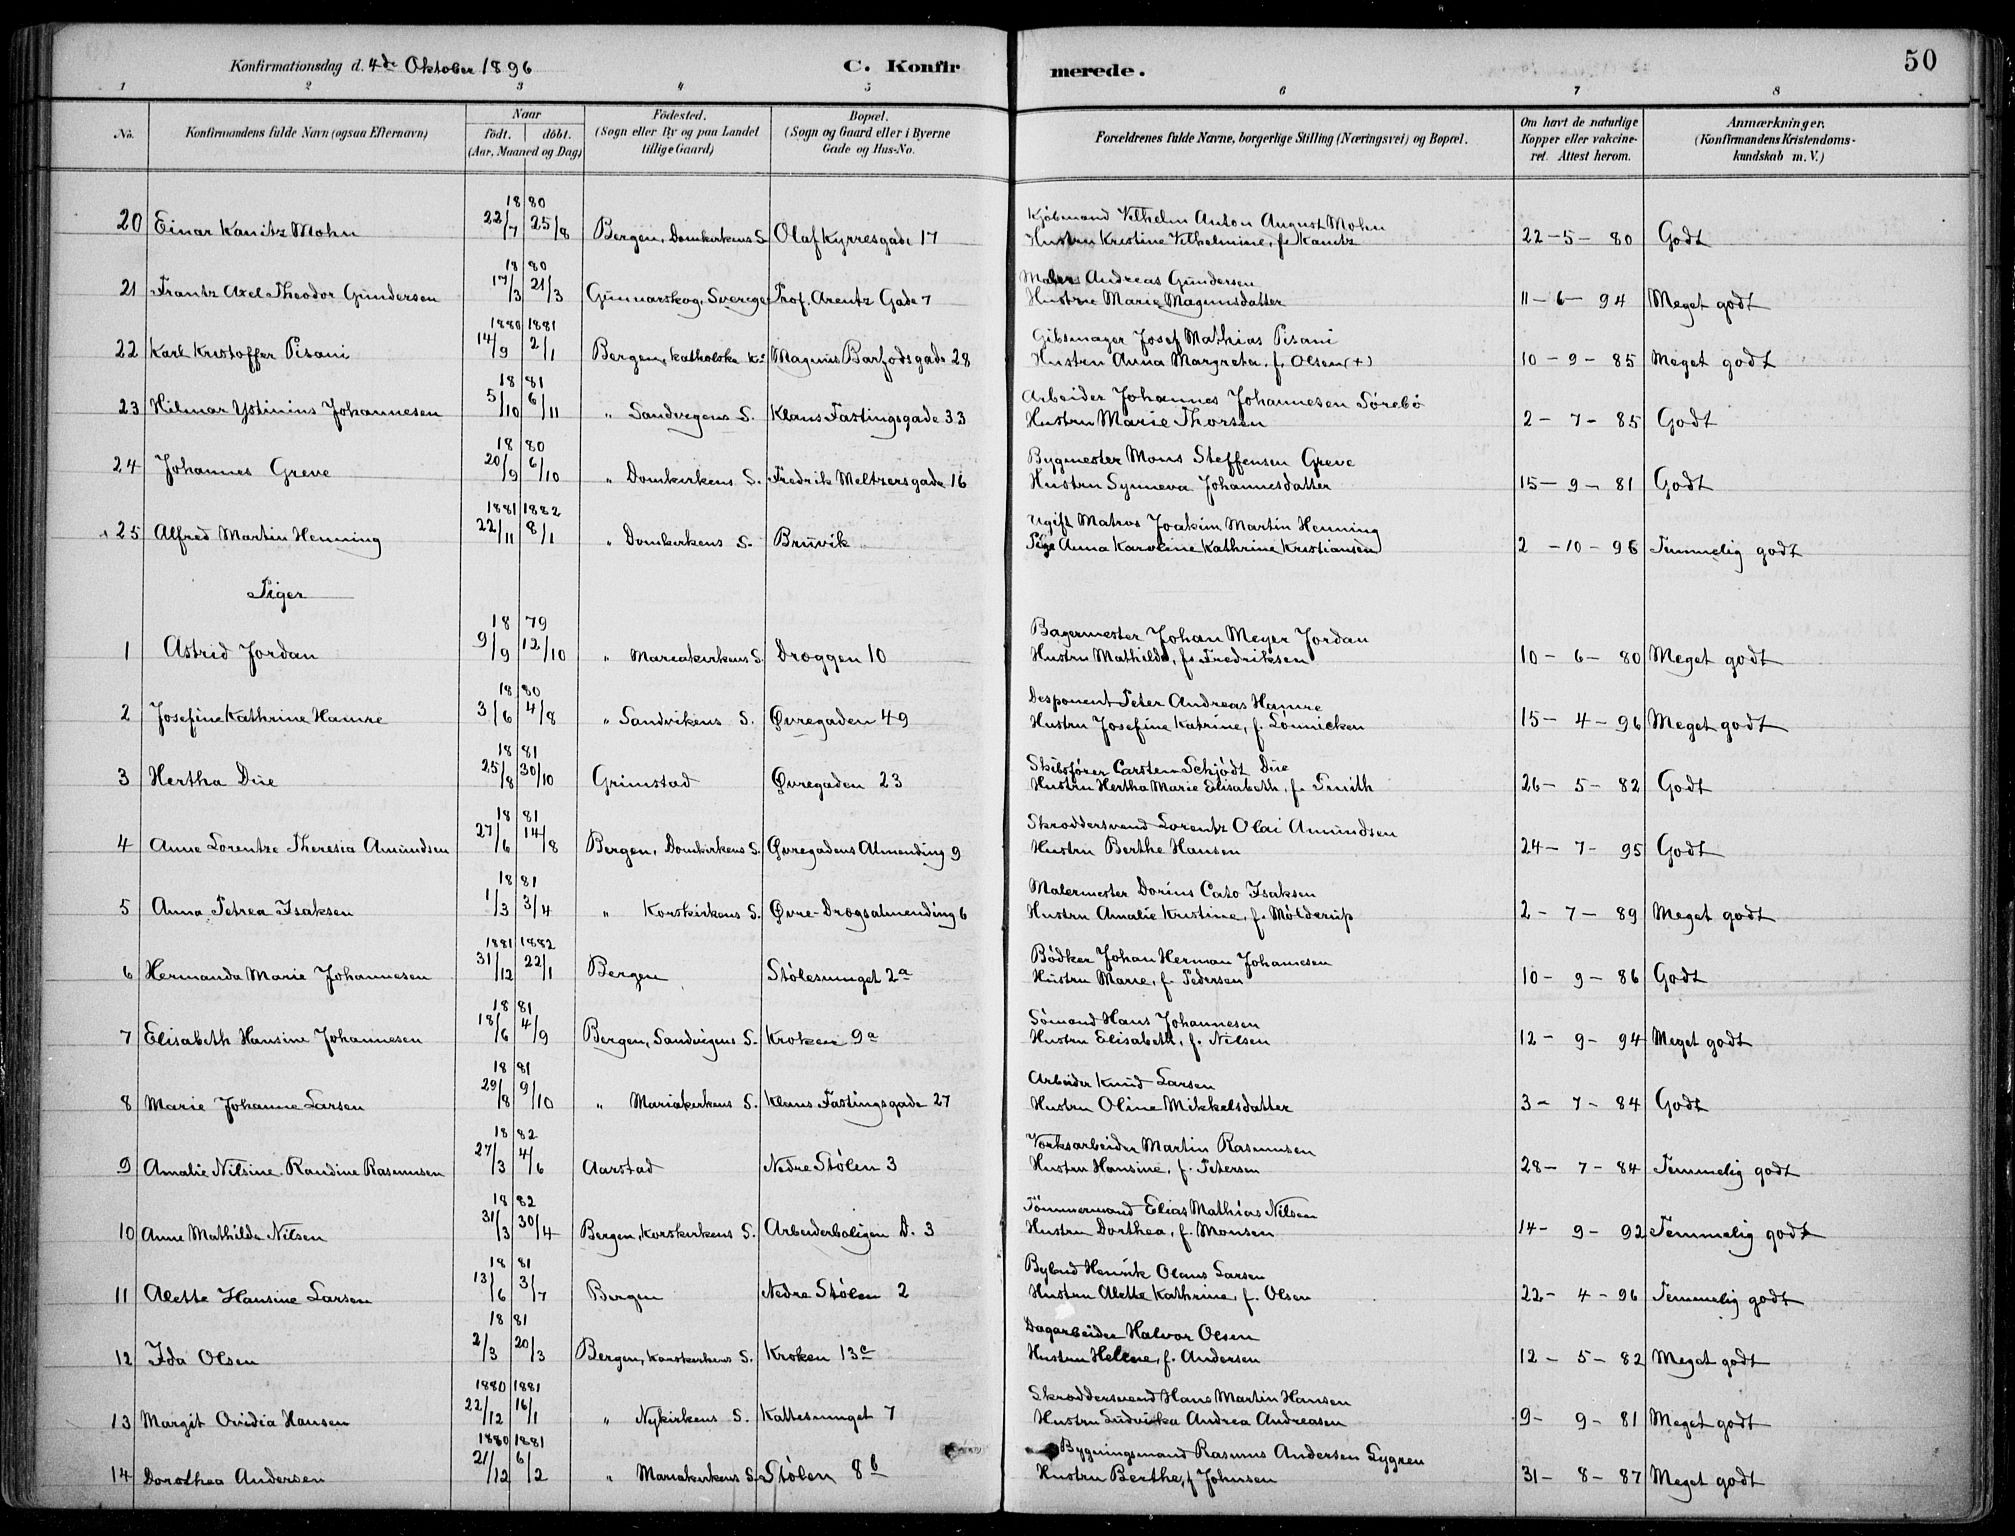 Konfirmationsdag d. 4de Oktober 1896 C. Konfirmerede. 50
1 2 3 4 5 6 7 8
No. Konfirmandens fulde Navn (ogsaa Efternavn) Naar født. døbt. (Aar, Maaned og Dag) Fødested. (Sogn eller By og paa Landet tillige Gaard) Bopæl. (Sogn og Gaard eller i Byerne Gade og Hus-No. Forældrenes fulde Navne, borgerlige Stilling (Næringsvei) og Bopæl. Om havt de naturlige Kopper eller vakcineret. Attest herom. Anmærkninger. (Konfirmandens Kristendomskundskab m. V.)
1880 Kjøbmand Vilhelm Anton August Mohn
20 Einar Kanitz Mohn 22/7 25/8 Bergen, Domkirkens S. Olaf Kyrresgade 17 Hustru Kristine Vilhelmine, f. Kanitz 22-5-80 Godt
1880 Maler Andreas Gundersen
21 Frantz Axel Theodor Gundersen 17/3 21/3 Gunnarskog, Sverige Prof. Arentz Gade 7 Hustru Marie Magnusdatter 11-6-94 Meget godt
1880 1881 Gibsmager Josef Mathias Pisani
22 Karl Kristoffer Pisani 14/9 2/1 Bergen, katholske K. Magnus Barfodsgade 28 Hustru Anna Margreta, f. Olsen (+) 10-9-85 Meget godt
1881 Arbeider Johannes Johannesen Sørebø
23 Hilmar Ystinius Johannesen 5/10 6/11 " Sandvegens S. Klaus Fastingsgade 33 Hustru Marie Thorsen 2-7-85 Godt
1880 Bygmester Mons Steffensen Greve
24 Johannes Greve 20/9 6/10 " Domkirkens S. Fredrik Meltzersgade 16 Hustru Synneva Johannesdatter 15-9-81 Godt
1881 1882 Ugift Matros Joakim Martin Henning
25 Alfred Martin Henning 22/11 8/1 " Domkirkens S. Bruvik Pige Anna Karoline Kathrine Kristiansen 2-10-96 Temmelig godt
Piger
1879 Bagermester Johan Meyer Jordan
1 Astrid Jordan 9/9 12/10 " Mariakirkens S. Dreggen 10 Hustru Mathilde, f. Fredriksen 10-6-80 Meget godt
1880 Desponent Peter Andreas Hamre
2 Josefine Kathrine Hamre 3/6 4/8 " Sandvikens S. Øvregaden 49 Hustru Josefine Katrine, f. Lønnicken 15-4-96 Meget godt
1881 Skibsfører Carsten Schjødt Due
3 Hertha Due 25/8 30/10 Grimstad Øvregaden 23 Hustru Hertha Marie Elisabeth, f. Smith 26-5-82 Godt
1881 Skræddersvend Lorentz Olai Amundsen
4 Anne Lorentze Theresia Amundsen 27/6 14/8 Bergen, Domkirkens S. Øvregadens Almending 9 Hustru Berthe Hansen 24-7-95 Godt
1881 Malermester Dorius Cato Isaksen
5 Anna Petrea Isaksen 1/3 3/4 " Korskirkens S. Øvre-Dregsalmending 6 Hustru Amalie Kristine, f. Mølderup 2-7-89 Meget godt
1881 1882 Bødker Johan Herman Johannesen
6 Hermanda Marie Johannesen 31/12 22/1 Bergen Stølesmuget 2a Hustru Marie, f. Pedersen 10-9-86 Godt
1881 Sømand Hans Johannesen
7 Elisabeth Hansine Johannesen 18/6 4/9 Bergen, Sandvigens S. Kroken 9a Hustru Elisabeth, f. Nilsen 12-9-94 Meget godt
1881 Arbeider Knud Larsen
8 Marie Johanne Larsen 29/8 9/10 " Mariakirkens S. Klaus Fastingsgade 27 Hustru Oline Mikkelsdatter 3-7-84 Godt
1882 Værksarbeider Martin Rasmussen
9 Amalie Nilsine Randine Rasmussen 27/3 4/6 Aarstad Nedre Stølen 3 Hustru Hansine, f. Petersen 28-7-84 Temmelig godt
1882 Tømmermand Elias Mathias Nilsen
10 Anne Mathilde Nilsen 31/3 30/4 Bergen, Korskirkens S. Arbeiderboligen D. 3 Hustru Dorthea, f. Monsen 14-9-92 Temmelig godt
1881 Bybud Henrik Olaus Larsen
11 Alette Hansine Larsen 13/6 3/7 Bergen Nedre Stølen 2 Hustru Alette Kathrine, f. Olsen 22-4-96 Temmelig godt
1881 Dagarbeider Halvor Olsen
12 Ida Olsen 2/3 20/3 Bergen, Korskirkens S. Kroken 13c Hustru Helene, f. Andersen 12-5-82 Meget godt
1880 1881 Skræddersvend Hans Martin Hansen
13 Margit Ovidia Hansen 22/12 16/1 " Nykirkens S. Kattesmuget 7 Hustru Ludvikka Andrea Andreasen 9-9-81 Meget godt
1880 1881 Bygningsmand Rasmus Andersen Lygren
14 Dorothea Andersen 21/12 6/2 " Mariakirkens S. Stølen 8b Hustru Berthe, f. Johnsen 31-8-87 Meget godt